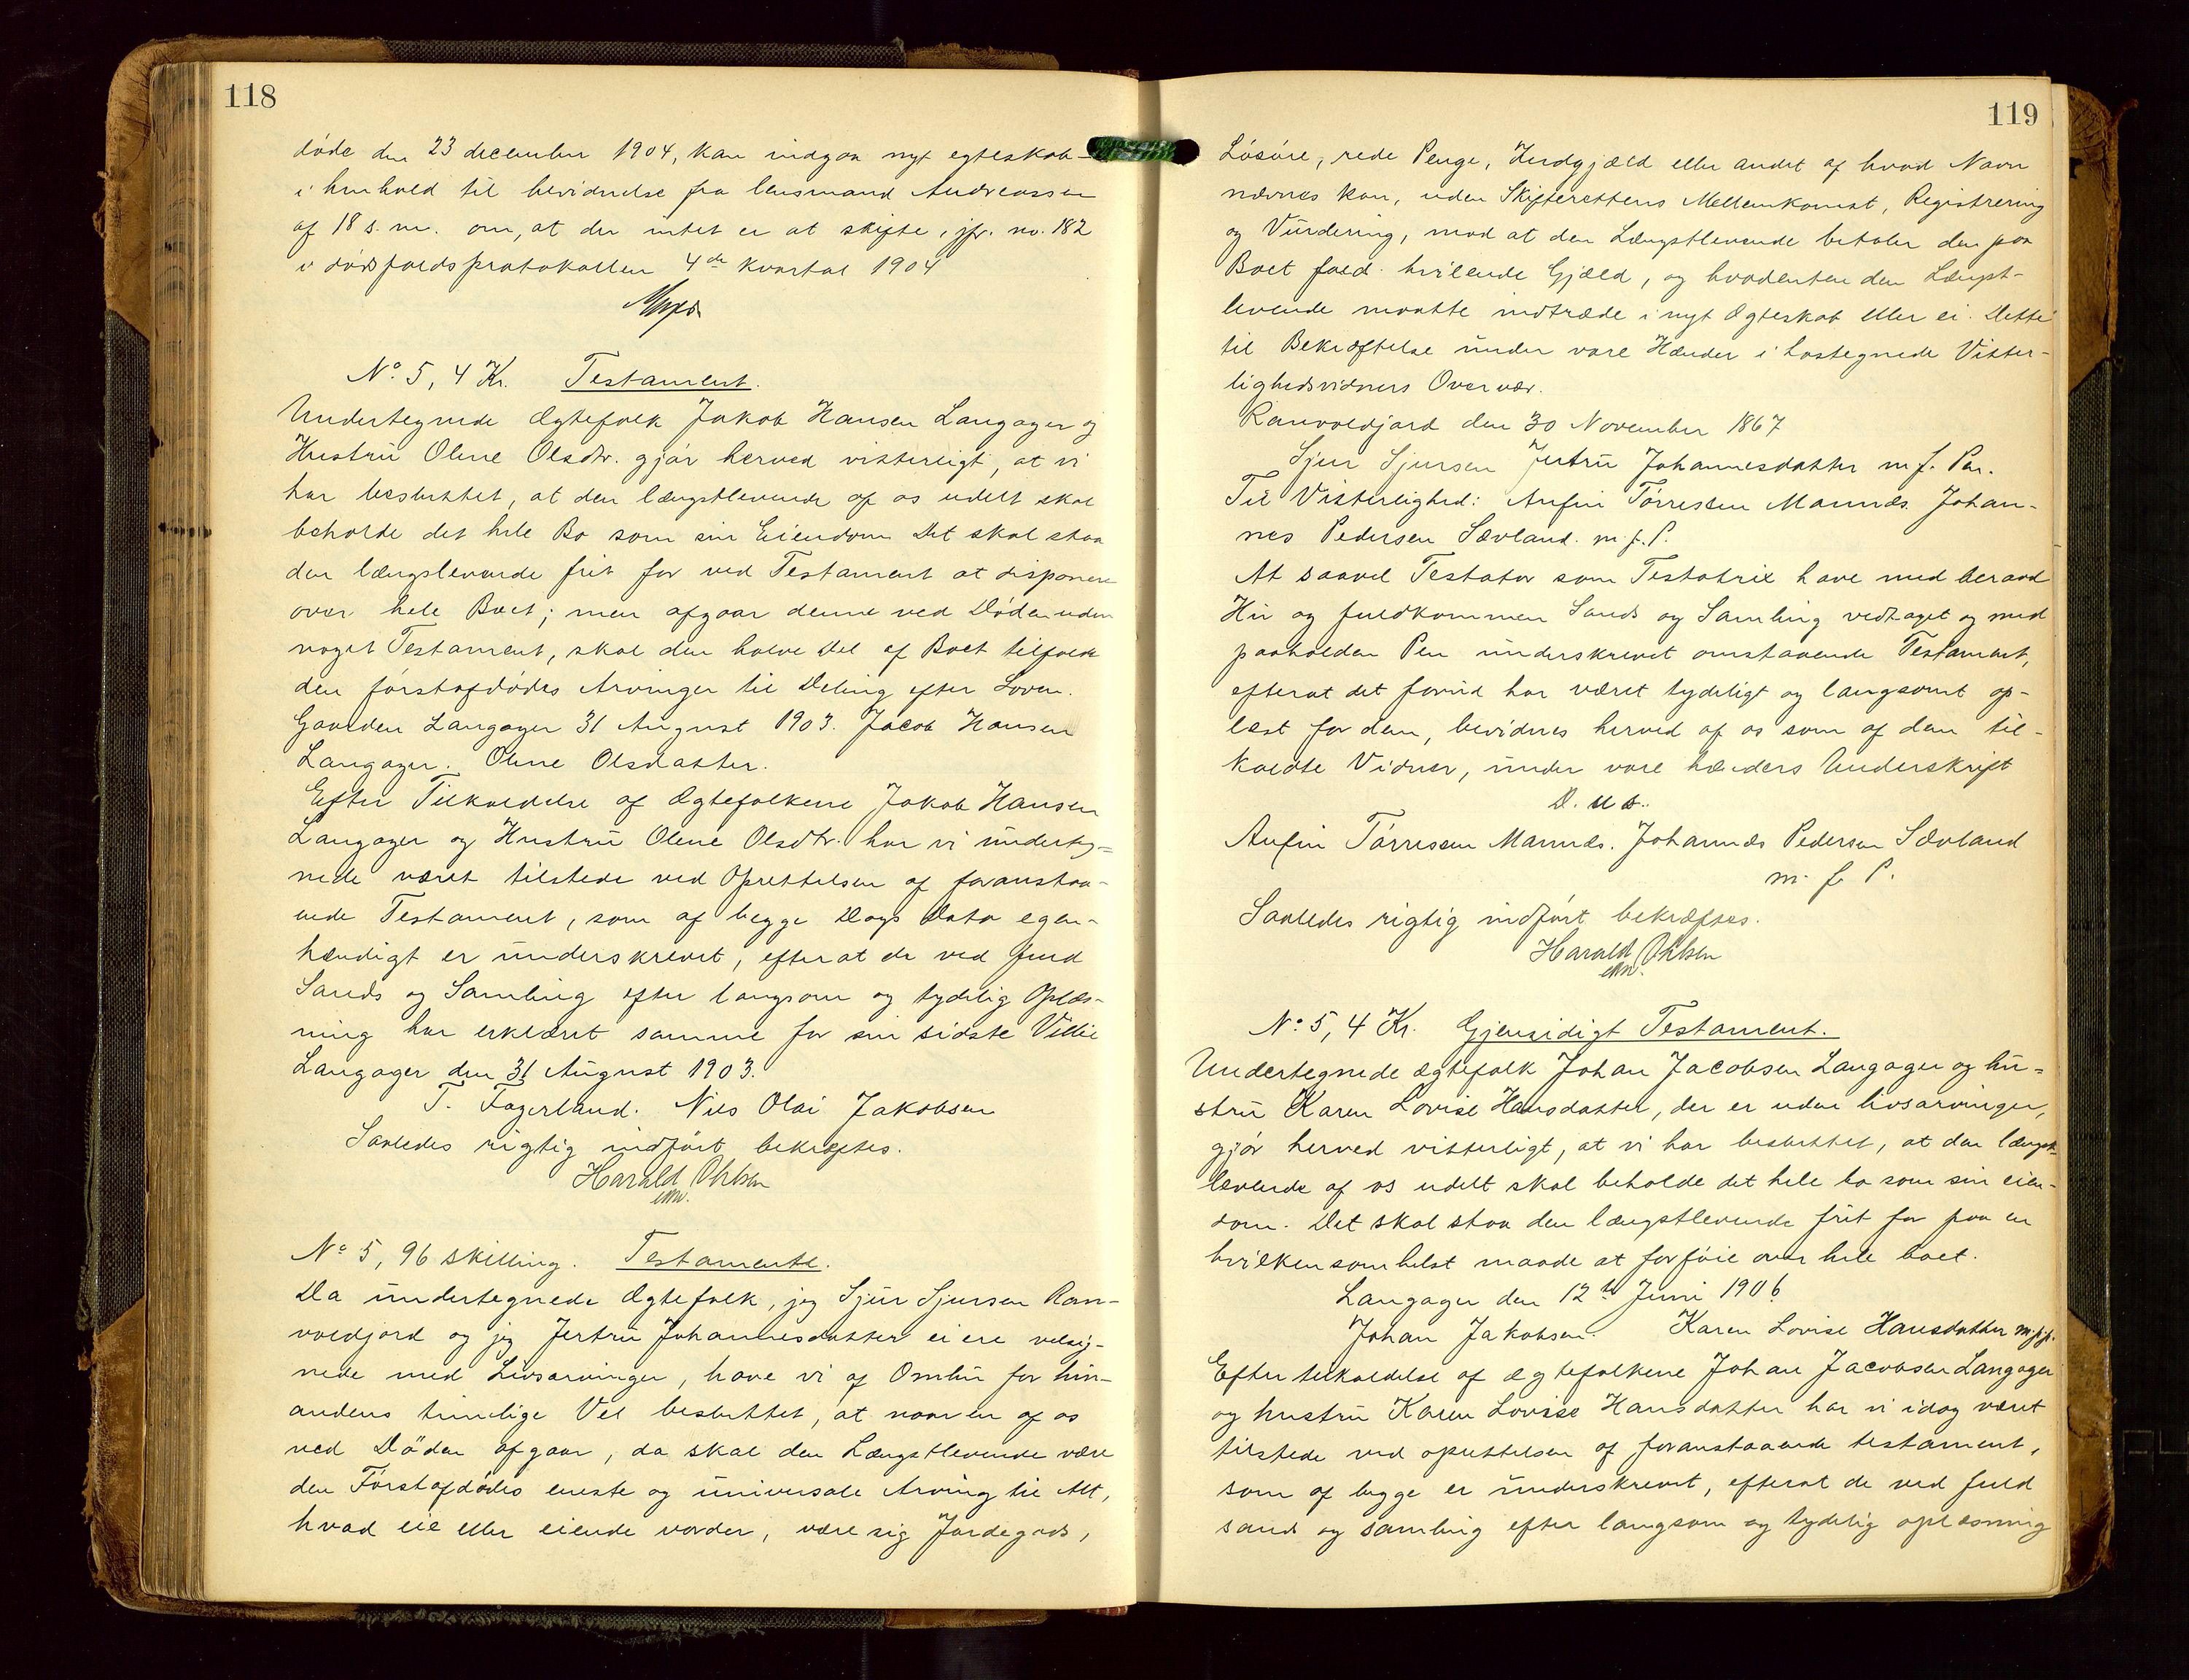 118
døde den 23 december 1904, kan indgaa nyt egteskab
i henhold til bevidnelse fra lensmand Andreassen
af 18 s. m. om, at der intet er at skifte, jfr. no. 182
i dødsfaldsprotokollen 4de kvartal 1904
No 5, 4 Kr. Testament.
Undertegnede Ægtefolk Jakob Hansen Langager og
Hustru Oline Olsdtr. gjør herved vitterligt, at vi
har besluttet, at den længstlevende af os udelt skal
beholde det hele Bo som sin Eiendom Det skal staa
den længslevende frit for ved Testament at disponere
over hele Boet; men afgaar denne ved Døden uden
noget Testament, skal den halve Del af Boet tilfalde
den førstafdødes Arvinger til Deling efter Loven.
Gaarden Langager 31 August 1903. Jacob Hansen
Langager. Oline Olsdatter.
Efter Tilkaldelse af Ægtefolkene Jakob Hansen
Langager og Hustru Oline Olsdtr. har vi underteg=
nede været tilstede ved Oprettelsen af foranstaa-
ende Testament, som af begge Dags Dato egen-
hændigt er underskrevet, efterat de ved fuld
Sands og Samling efter langsom og tydelig Oplæs-
ning har erklæret samme for sin sidste Villie
Langager den 31 August 1903.
T. Fagerland. Nils Olai Jakobsen
Saaledes rigtig indført bekræftes.
Harald Ohlsen
No 5, 96 skilling. Testamente.
Da undertegnede Ægtefolk, jeg Sjur Sjursen Ran-
voldjord og jeg Jertru Johannesdatter ei ere velsig-
nede med Livsarvinger, have vi af Omhu for hin-
andens timelige Vel besluttet, at naar en af os
ved Döden afgaar, da skal den Længstlevende være
den Førstafdødes eneste og universale Arving til Alt,
hvad eie eller eiende vorder, være sig Jordegods,
119
Løsøre, rede Penge, Indgjæld eller andet af hvad Navn
nævnes kan, uden Skifterettens Mellemkomst, Registrering
og Vurdering, mod at den Længstlevende betaler den paa
Boet fald. hvilende Gjæld, og hvadenten den Længst-
levende maatte indtræde i nyt Ægteskab eller ei. Dette
til Bekræftelse under vore Hænder i hostegnede Vitter-
lighedsvidners Overvær.
Ranvoldjord den 30 November 1867
Sjur Sjursen Jertru Johannesdatter m f. Pen.
Til Vitterlighed: Anfin Tørressen Mannæs. Johan-
nes Pedersen Sævland. m. f. P.
At saavel Testator som Testatrix have med beraad
Hu og fuldkommen Sands og Samling vedtaget og med
paaholden Pen underskrevet omstaaende Testament,
efterat det forud har været tydeligt og langsomt op-
læst for dem, bevidnes herved af os som af dem til-
kaldte Vidner, under vore hænders Underskrift
D. u s.
Anfin Tørressen Mannæs. Johannes Pedersen Sævland
m. f. P.
Saaledes rigtig indført bekræftes.
Harald Ohlsen
No 5, 4 Kr. Gjensidigt Testament.
Undertegnede ægtefolk Johan Jacobsen Langager og hu=
stru Karen Lovise Hansdatter, der er uden livsarvinger,
gjør herved vitterligt, at vi har besluttet, at den længst-
levende af os udelt skal beholde det hele bo som sin eien-
dom. Det skal staa den længstlevende frit for paa en
hvilkensomhelst maade at forføie over hele boet.
Langager den 12te Juni 1906
Johan Jakobsen. Karen Lovise Hansdatter m. f. p.
Efter tilkaldelse af ægtefolkene Johan Jacobsen Langager
og hustru Karen Lovise Hansdatter har vi idag været
tilstede ved oprettelsen af foranstaaende testament,
som af begge er underskrevet, efterat de ved fuld
sands og samling efter langsom og tydelig oplæsning